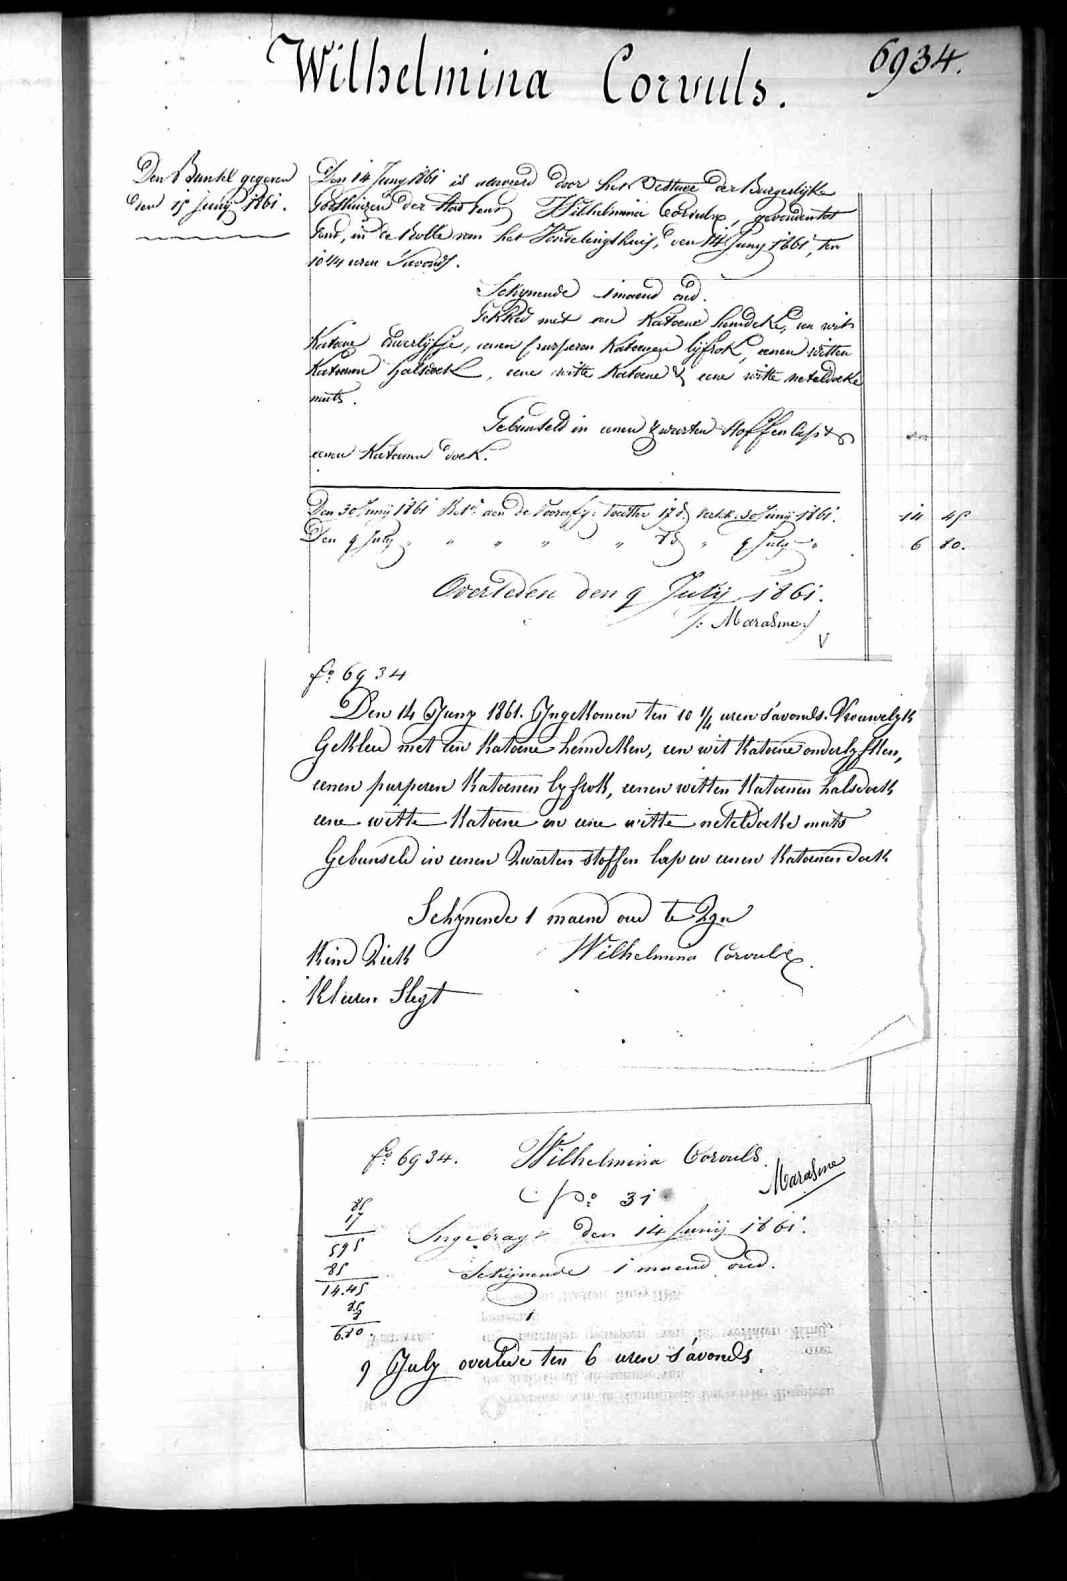 Wilhelmina Corvuls.
6934.
Den Bundel gegeven
den 15 Juny 1861.
Den 14 Juny 1861 is aanveerd door het Bestuur der Burgerlijke
Godshuizen der Stad Gend, Wilhelmina Corvuls, gevonden tot
Gend, in de Rolle van het Vondelingshuis, den 14 Juny 1861, ten
10 1/4 uren s'avonds.
Schynende 1 maend oud.
Gekleed met een Katoene hemdeke, een wit
Katoene onderlyfje, eenen purperen Katoenen lyfrok, eenen witten
Katoenen halsdoek, eene witte Katoene & eene witte neteldoeke
muts.
Gebunseld in eenen zwarten stoffen lap &
eenen Katoenen doek.
Den 30 Juny 1861 aen de Voorafg: 17 d. 30 Juny 1861. 14 45
Den 9 July " " " " " 8 d " 9 July " 6 80.
Overleden den 9 July 1861.
/: Marasme :/
V
fo: 6934
Den 14 Juny 1861. Ingekomen ten 10 1/4 uren s'avonds. Vrouwelyk
Gekleed met een Katoene hemdeken, een wit Katoene onderlyfken,
eenen purperen Katoenen lyfrok, eenen witten Katoenen halsdoek
eene witte Katoene en eene witte neteldoeke muts
Gebunseld in eenen Zwarten stoffen lap en eenen Katoenen doek
Schynende 1 maend oud te Zyn
Kind Ziek
Wilhelmina Corvuls.
Kleeren Slegt
fo: 6934. Wilhelmina Corvuls.
No: 31
Marasme
85
17
595
85
14.45
85
8
6.80
Ingebragt den 14 Junij 1861.
Schijnende 1 maend oud.
9 July overlede ten 6 uren s'avonds